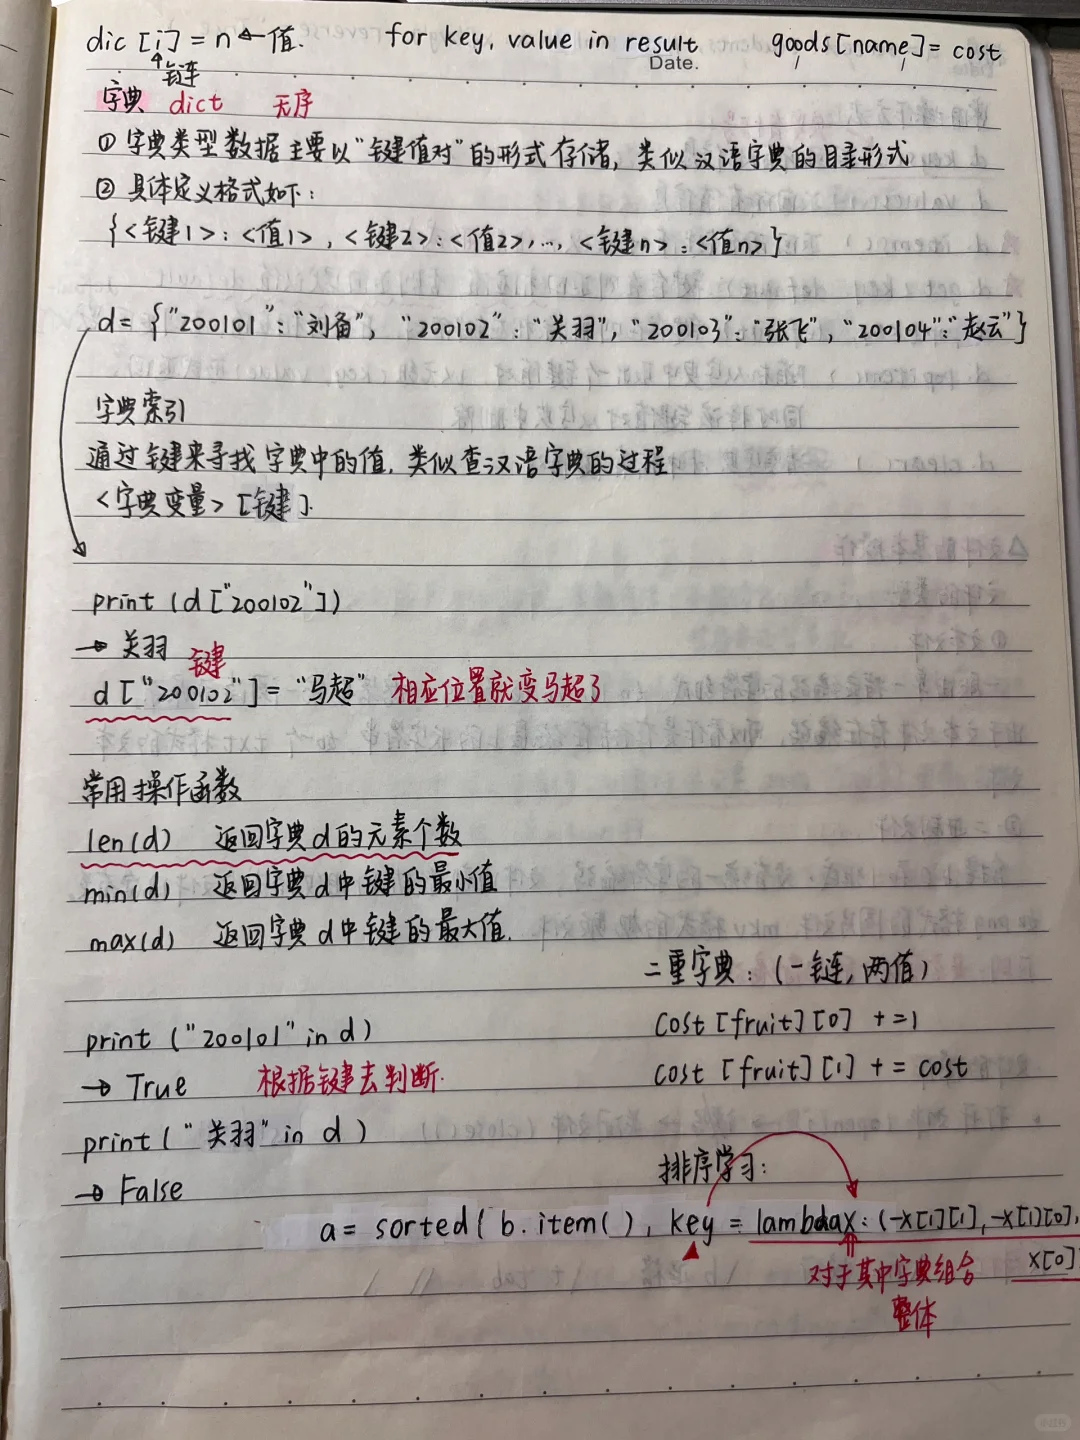 dic [i] = n ← 值.    for key, value in result    goods[name] = cost
键
Date.
字典 dict 无序
① 字典类型数据主要以"键值对"的形式存储, 类似汉语字典的目录形式
② 具体定义格式如下:
{<键1>:<值1>, <键2>:<值2>, …, <键n>:<值n>}
d= {"200101":"刘备", "200102":"关羽", "200103":"张飞", "200104":"赵云"}
字典索引
通过键来寻找字典中的值, 类似查汉语字典的过程
<字典变量> [键].
print (d["200102"])
→ 关羽
键
d["200102"] = "马超" 相应位置就变马超了
常用操作函数
len(d) 返回字典d的元素个数
min(d) 返回字典d中键的最小值
max(d) 返回字典d中键的最大值.
二重字典: (一键, 两值)
cost [fruit][0] +=1
cost [fruit][1] += cost
print ("200101" in d)
→ True 根据键去判断.
print ("关羽" in d)
→ False
排序学习:
a = sorted( b.item(), key = lambdax: (-x[1][1], -x[1][0],
x[0]
对于其中字典组合
整体